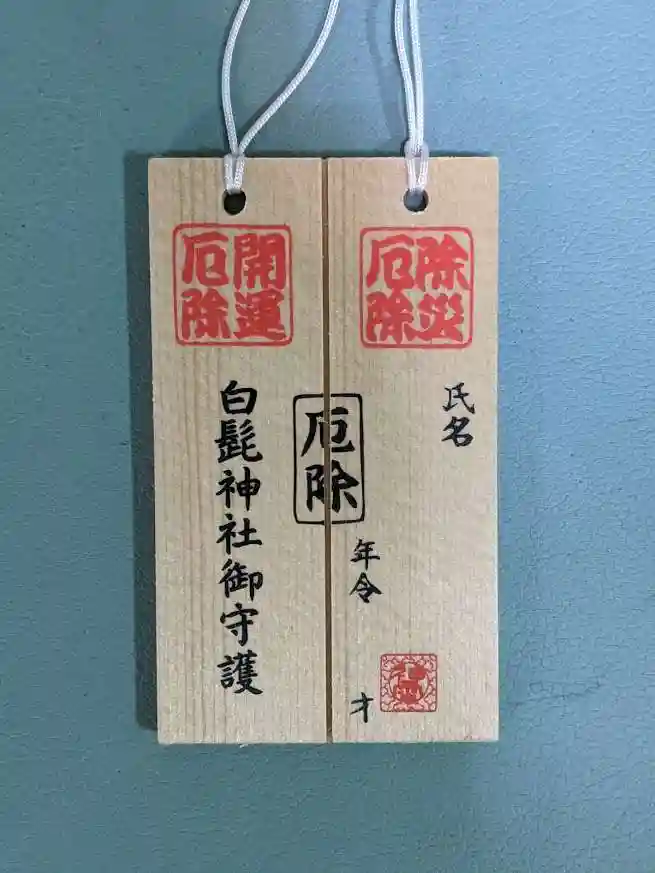 除災
厄除
氏名
年令
才
厄除
開運
厄除
白髭神社御守護